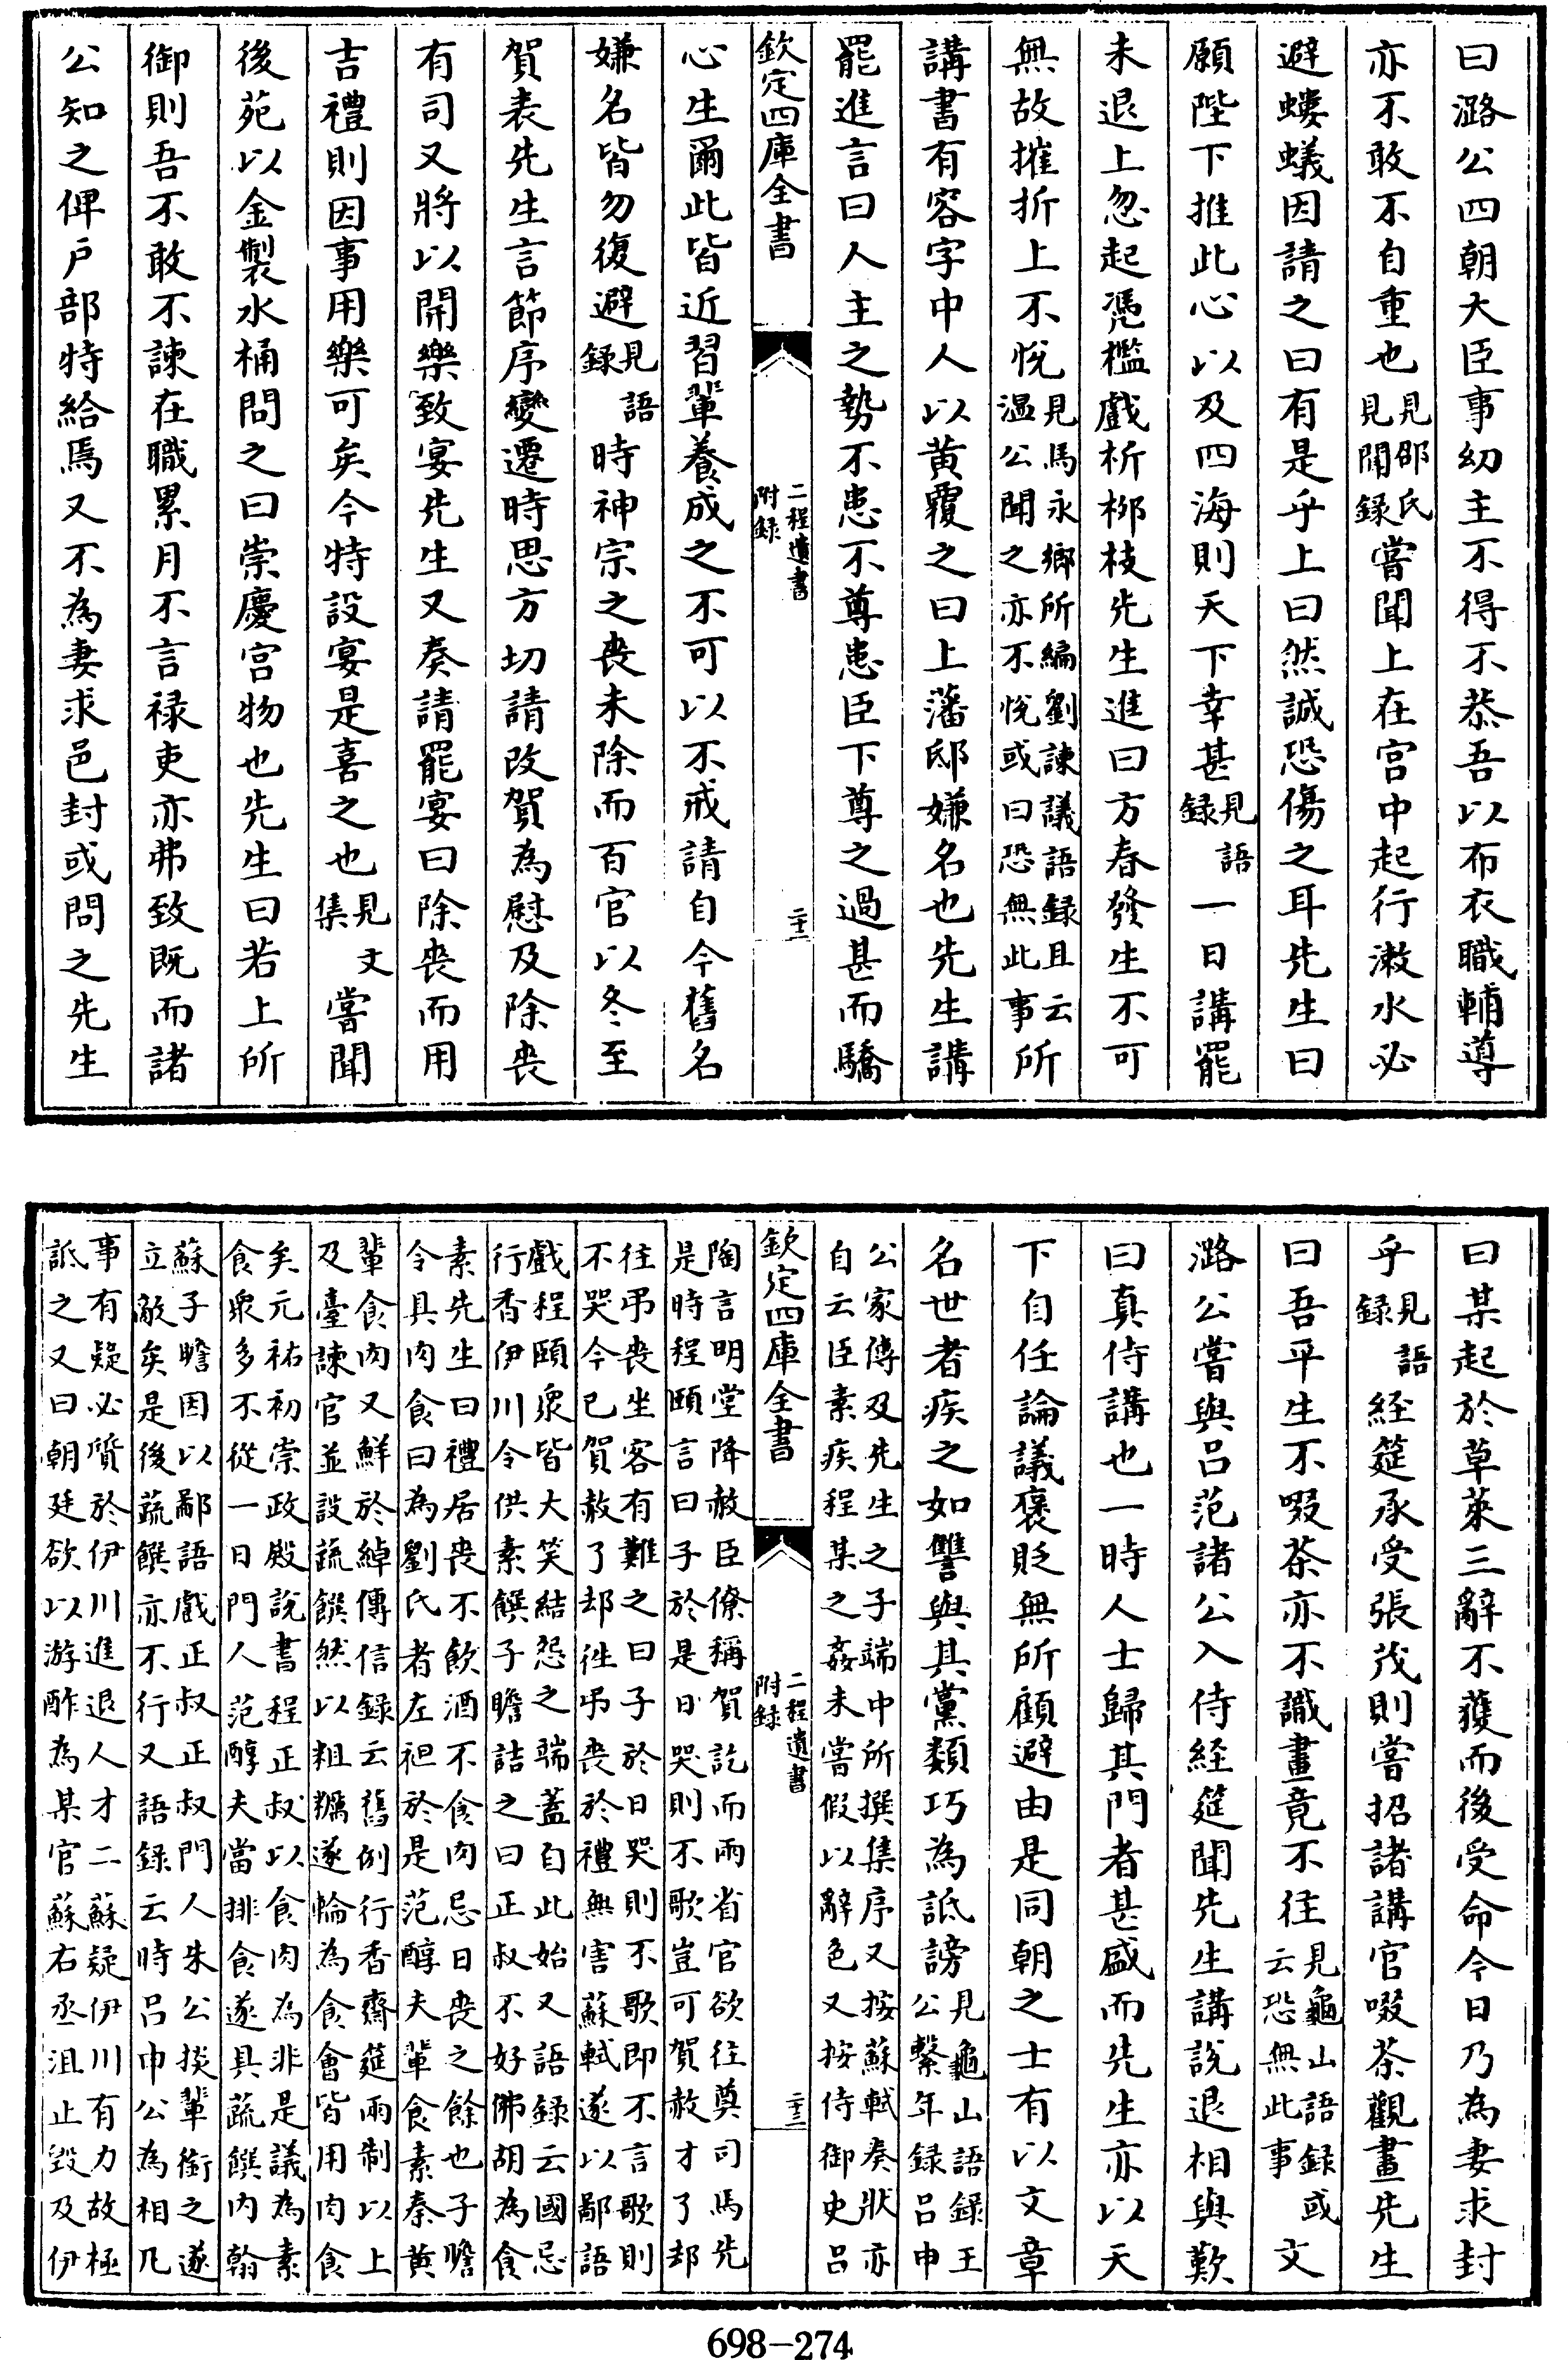 曰潞公四朝大臣事幼主不得不恭吾以布衣職輔導
亦不敢不自重也見邵氏見聞録嘗聞上在宫中起行漱水必
避螻蟻因請之曰有是乎上曰然誠恐傷之耳先生曰
願陛下推此心以及四海則天下幸甚見語録一日講罷
未退上忽起憑檻戲折栁枝先生進曰方春發生不可
無故摧折上不悦見馬永卿所編劉諫議語録且云温公聞之亦不悦或曰恐無此事所
講書有容字中人以黄覆之曰上藩邸嫌名也先生講
罷進言曰人主之勢不患不尊患臣下尊之過甚而驕
欽定四庫全書
二程遺書附録
二十二
心生爾此皆近習輩養成之不可以不戒請自今舊名
嫌名皆勿復避見語録時神宗之喪未除而百官以冬至
賀表先生言節序變遷時思方切請改賀為慰及除喪
有司又將以開樂致宴先生又奏請罷宴曰除喪而用
吉禮則因事用樂可矣今特設宴是喜之也見文集嘗聞
後苑以金製水桶問之曰崇慶宫物也先生曰若上所
御則吾不敢不諫在職累月不言禄吏亦弗致既而諸
公知之俾户部特給焉又不為妻求邑封或問之先生
曰某起於草萊三辭不獲而後受命今日乃為妻求封
乎見語録經筵承受張茂則嘗招諸講官啜茶觀畫先生
曰吾平生不啜茶亦不識畫竟不往見龜山語録或云恐無此事文
潞公嘗與吕范諸公入侍經筵聞先生講說退相與歎
曰真侍講也一時人士歸其門者甚盛而先生亦以天
下自任論議褒貶無所顧避由是同朝之士有以文章
名世者疾之如讐與其黨類巧為詆謗見龜山語録王公繫年録吕申
公家傳及先生之子端中所撰集序又按蘇軾奏狀亦
自云臣素疾程某之姦未嘗假以辭色又按侍御史吕
欽定四庫全書
二程遺書附録
二十三
陶言明堂降赦臣僚稱賀訖而兩省官欲往奠司馬先
是時程頤言曰子於是日哭則不歌豈可賀赦才了却
往弔喪坐客有難之曰子於日哭則不歌即不言歌則
不哭今已賀赦了却徃弔喪於禮無害蘇軾遂以鄙語
戲程頤衆皆大笑結怨之端蓋自此始又語録云國忌
行香伊川令供素饌子瞻詰之曰正叔不好佛胡為食
素先生曰禮居喪不飲酒不食肉忌日喪之餘也子瞻
令具肉食曰為劉氏者左袒於是范醇夫輩食素秦黄
輩食肉又鮮於綽傳信録云舊例行香齋筵兩制以上
及臺諫官並設蔬饌然以粗糲遂輪為食會皆用肉食
矣元祐初崇政殿說書程正叔以食肉為非是議為素
食衆多不從一日門人范醇夫當排食遂具蔬饌内翰
蘇子瞻因以鄙語戲正叔正叔門人朱公掞輩銜之遂
立敵矣是後蔬饌亦不行又語録云時吕申公為相凡
事有疑必質於伊川進退人才二蘇疑伊川有力故極
詆之又曰朝廷欲以游酢為某官蘇右丞沮止毁及伊
698-274